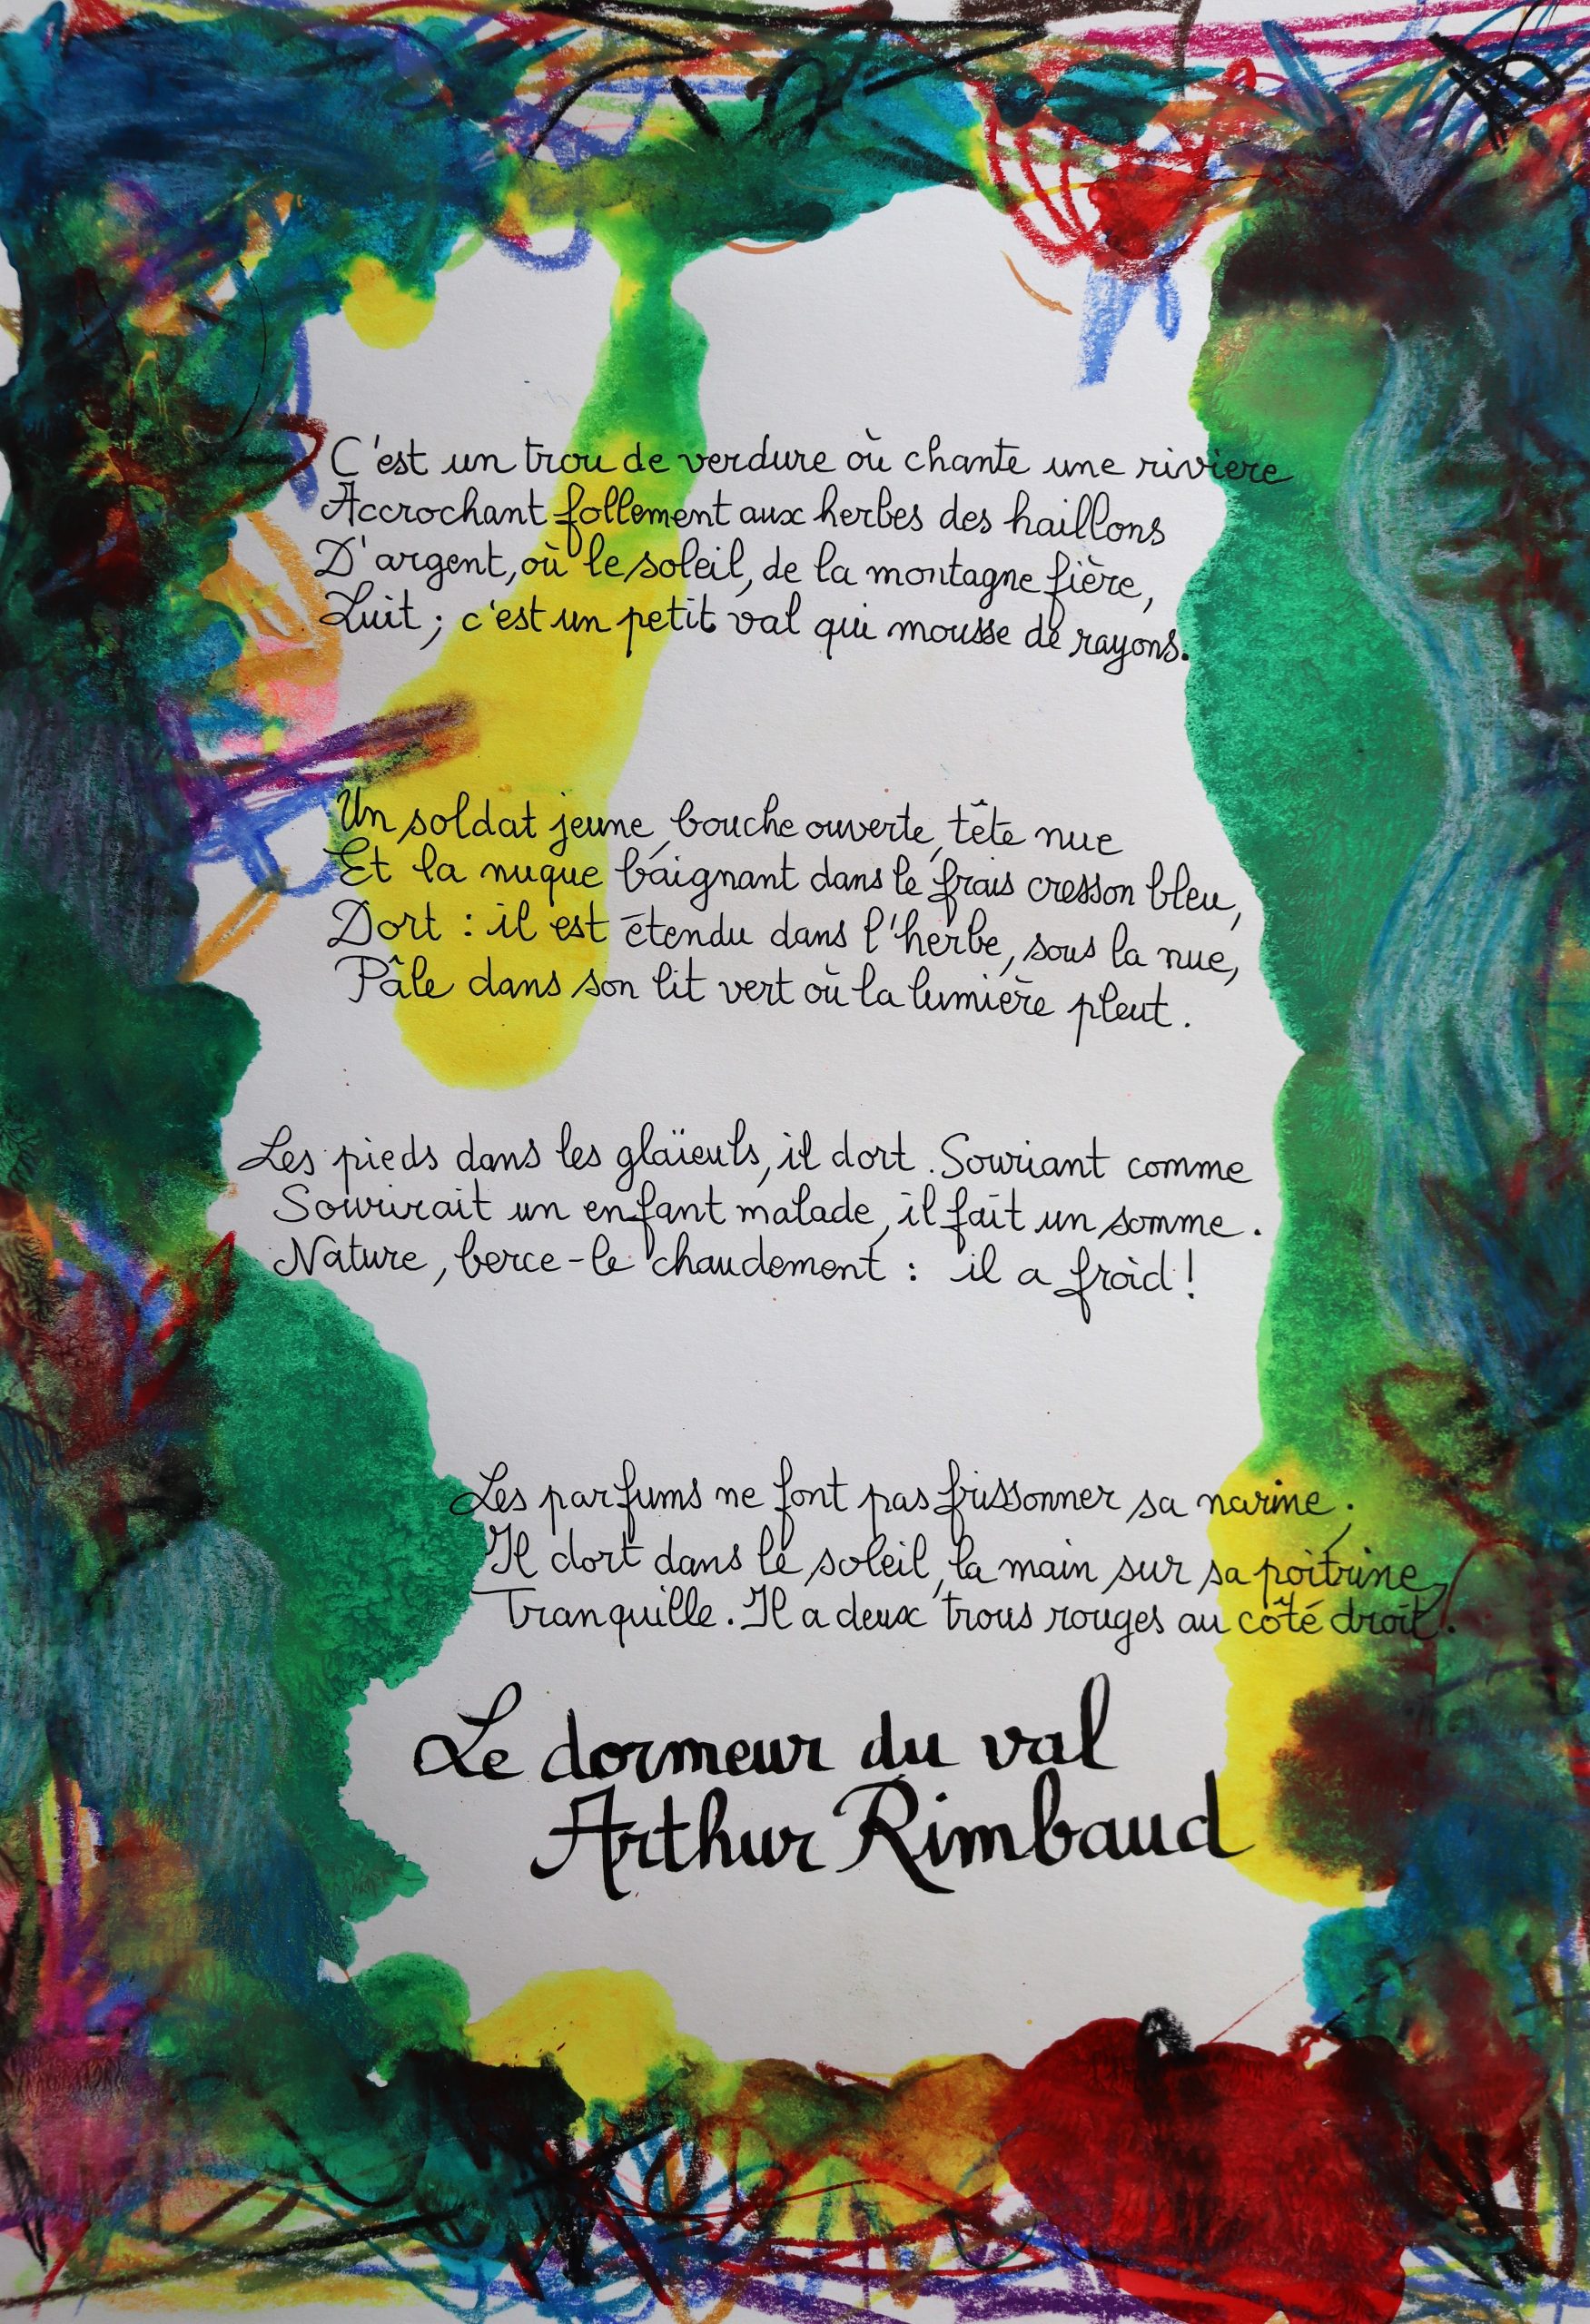 C'est un trou de verdure où chante une riviere
Accrochant follement aux herbes des haillons
D'argent, où le soleil, de la montagne fière,
Luit ; c'est un petit val qui mousse de rayons.
Un soldat jeune, bouche ouverte, tête nue
Et la nuque baignant dans le frais cresson bleu,
Dort : il est étendu dans l'herbe, sous la nue,
Pâle dans son lit vert où la lumière pleut.
Les pieds dans les glaïeuls, il dort. Souriant comme
Sourirait un enfant malade, il fait un somme.
Nature, berce-le chaudement : il a froid !
Les parfums ne font pas frissonner sa narine ;
Il dort dans le soleil, la main sur sa poitrine,
Tranquille. Il a deux trous rouges au côté droit.
Le dormeur du val
Arthur Rimbaud